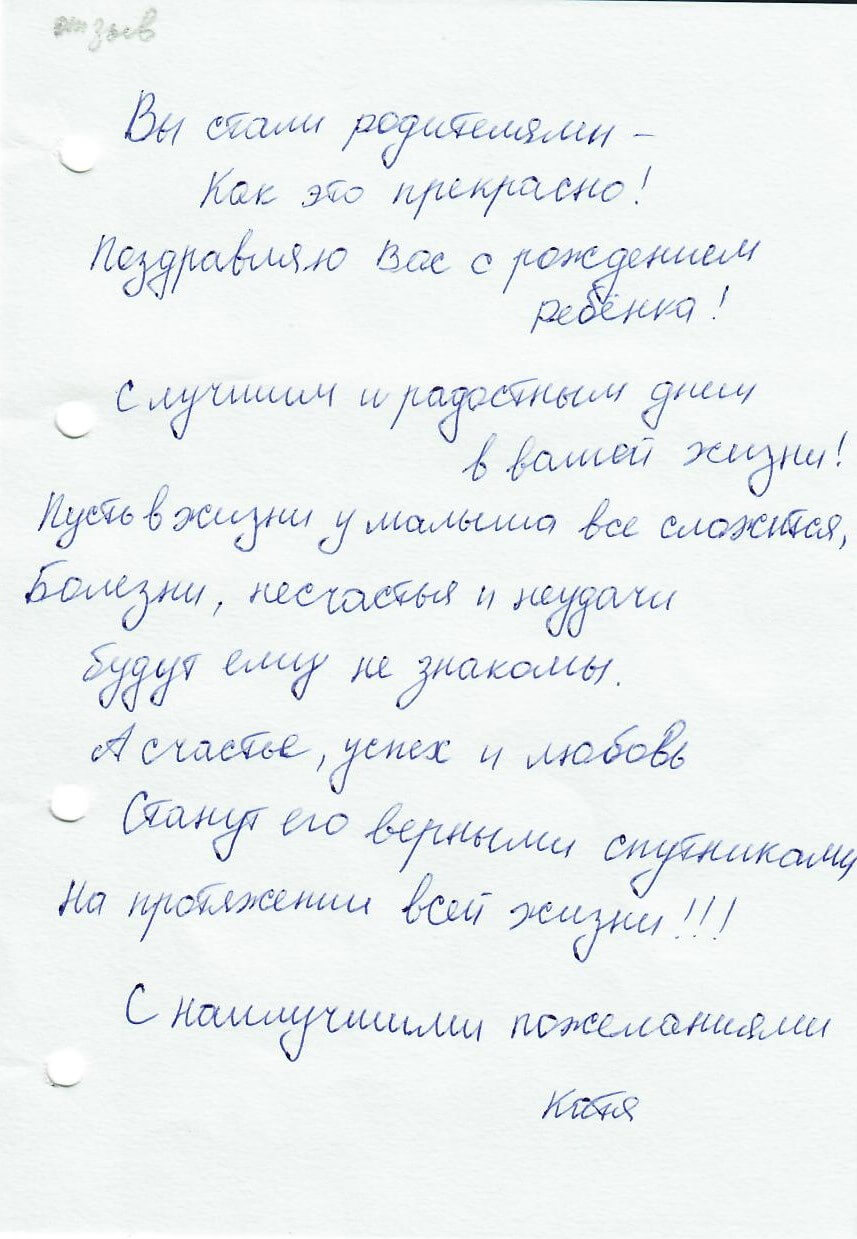 отзыв
Вы стали родителями –
Как это прекрасно!
Поздравляю Вас с рождением
ребёнка!
С лучшим и радостным днем
в вашей жизни!
Пусть в жизни у малыша все сложится,
Болезни, несчастья и неудачи
будут ему не знакомы.
А счастье, успех и любовь
Станут его верными спутниками
На протяжении всей жизни!!!
С наилучшими пожеланиями
Катя